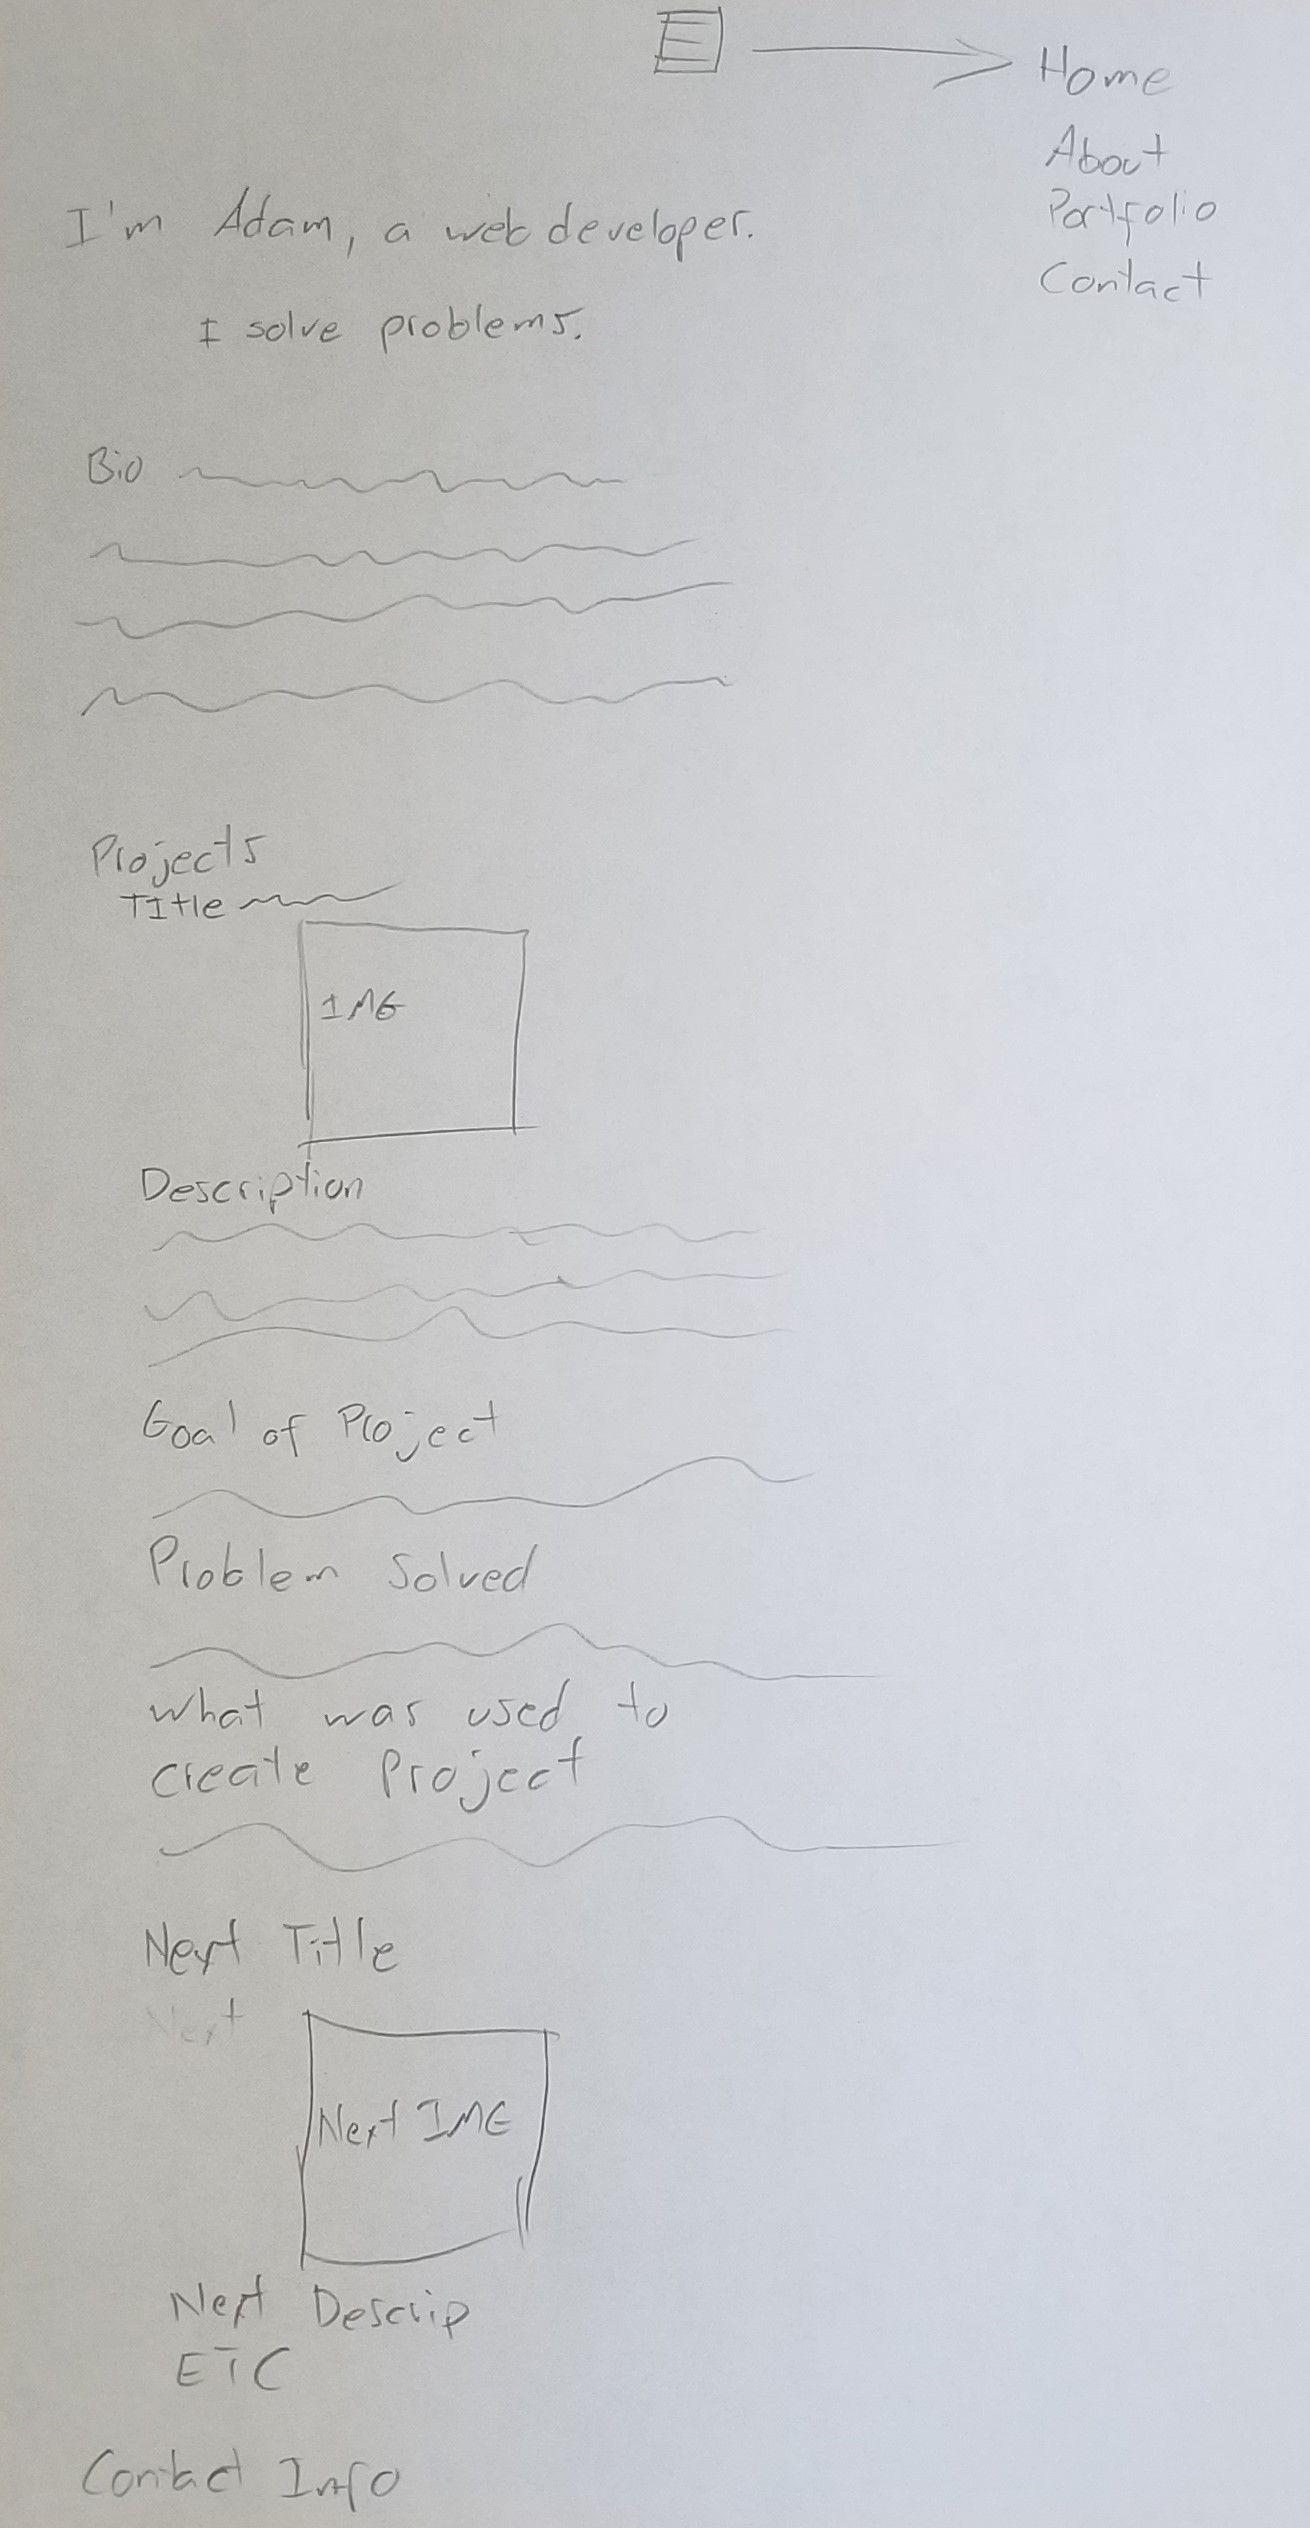 Home
About
Portfolio
Contact
I'm Adam, a web developer.
I solve problems.
Bio
Projects
Title
IMG
Description
Goal of Project
Problem Solved
what was used to
create Project
Next Title
Next
Next IMG
Next Descrip
ETC
Contact Info